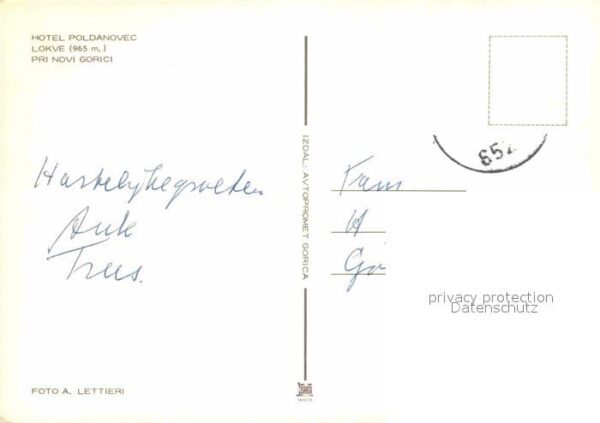 HOTEL POLDANOVEC
LOKVE (965 m.)
PRI NOVI GORICI
Hartelijke groeten
Auk
Trees.
IZDAL: AVTOPROMET GORICA
652
Fam
H
Go
privacy protection
Datenschutz
FOTO A. LETTIERI